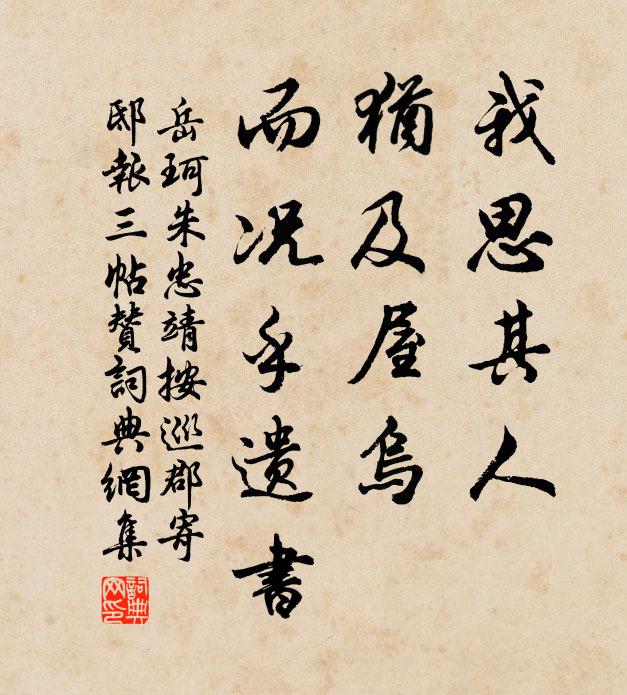 我思其人
猶及屋烏
而況乎遺書
岳珂朱忠靖按巡郡寄
邸報三帖贊詞典網集
詞典網印